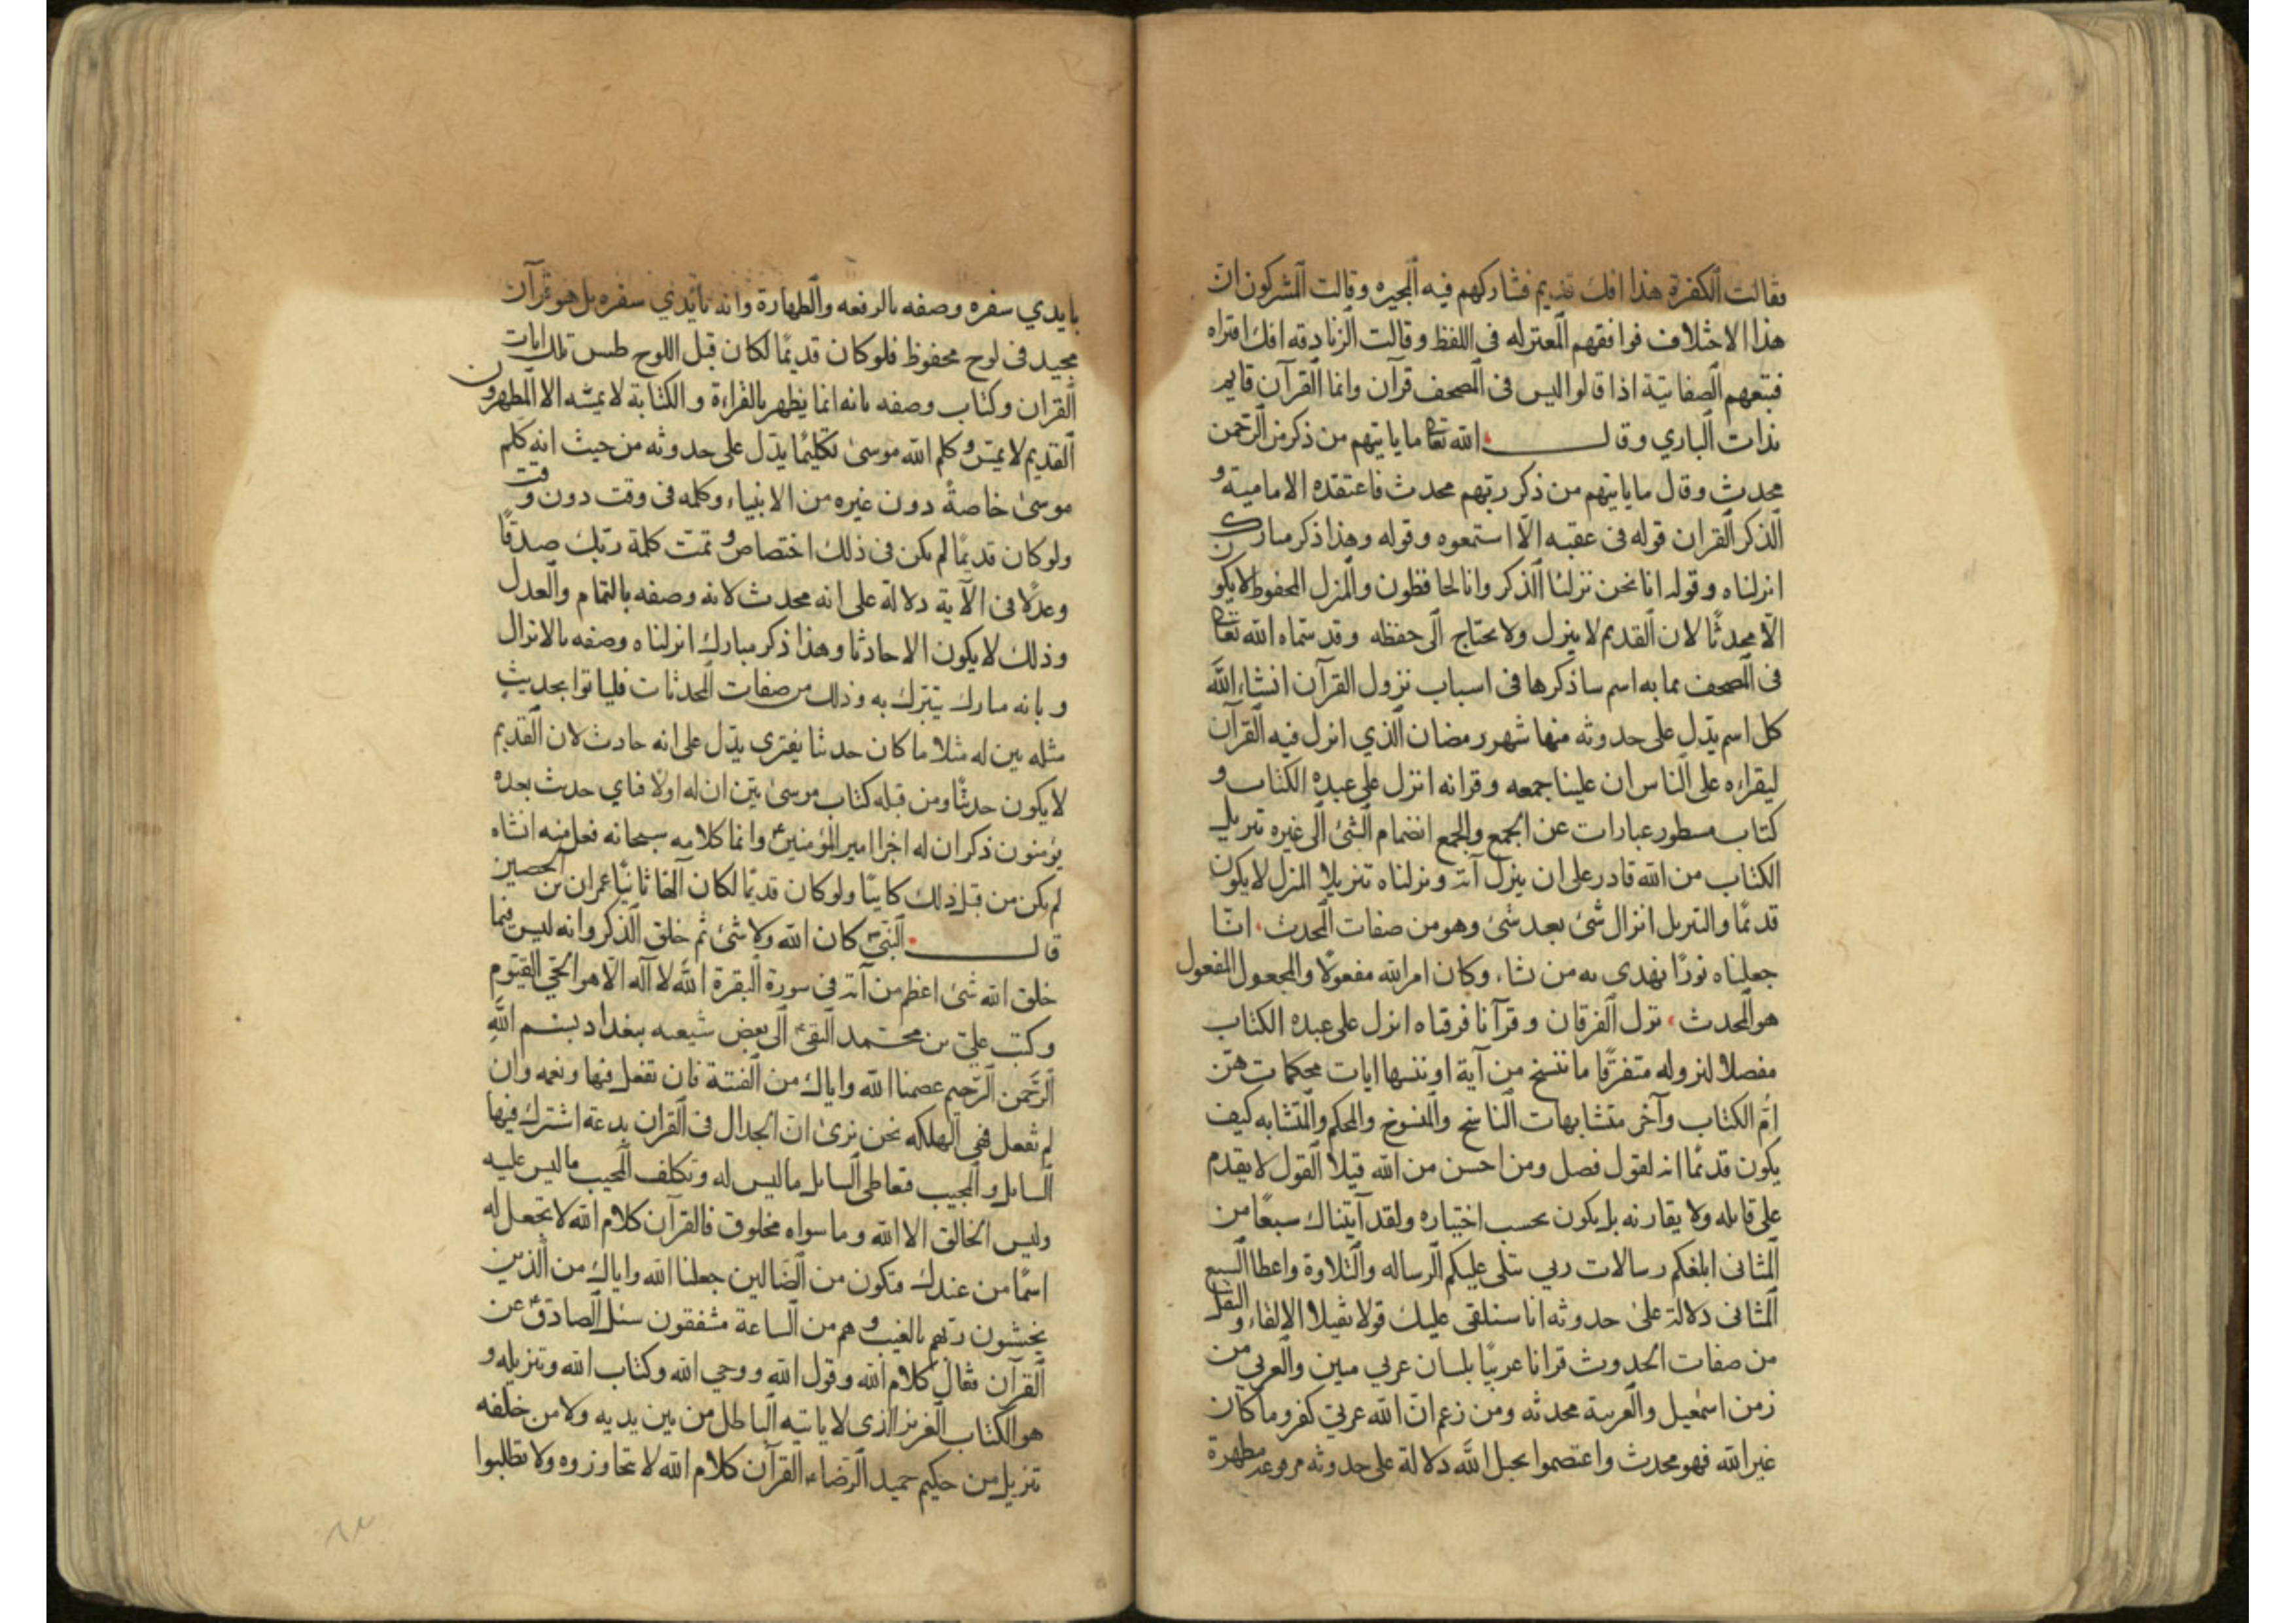 فقالت الكفرة هذا افك قديم فشاركهم فيه المجبره وقالت المشركون ان
هذا الا اختلاف فوافقهم المعتزله فى اللفظ وقالت الزنادقه افك افتراه
فتبعهم الصفاتية اذا قالوا ليس فى المصحف قرآن وانما القرآن قايم
بذات الباري وقال الله تعا ما ياتيهم من ذكر من الرحمن
محدث وقال ما ياتيهم من ذكر ربهم محدث فاعتقده الامامية و
الذكر القران قوله فى عقبه الا استمعوه وقوله وهذا ذكر مبارك
انزلناه وقوله انا نحن نزلنا الذكر وانا لحافظون والمنزل المحفوظ لا يكون
الا محدثا لان القديم لا ينزل ولا يحتاج الى حفظه وقد سماه الله تعا
فى المصحف بمايه اسم ساذكرها فى اسباب نزول القرآن انشاء الله
كل اسم يدل على حدوثه منها شهر رمضان الذي انزل فيه القرآن
ليقراه على الناس ان علينا جمعه وقرانه انزل على عبده الكتاب و
كتاب مسطور عبارات عن الجمع والجمع انضمام الشئ الى غيره تنزيل
الكتاب من الله قادر على ان ينزل آية ونزلناه تنزيلا المنزل لا يكون
قديما والتنزيل انزال شئ بعد شئ وهو من صفات المحدث انا
جعلناه نورا نهدى به من نشاء وكان امر الله مفعولا والمجعول المفعول
هو المحدث نزل الفرقان وقرآنا فرقناه انزل على عبده الكتاب
مفصلا لنزوله متفرقا ما ننسخ من آية او ننسها ايات محكمات هن
ام الكتاب وآخر متشابهات الناسخ والمنسوخ والمحكم والمتشابه كيف
يكون قديما انه لقول فصل ومن احسن من الله قيلا القول لا يقدم
على قايله ولا يقارنه بل يكون بحسب اختياره ولقد آتيناك سبعا من
المثانى ابلغكم رسالات ربي تتلى عليكم الرساله والتلاوة واعطا السبع
المثانى دلالة على حدوثه انا سنلقى عليك قولا ثقيلا الالقاء والثقل
من صفات الحدوث قرانا عربيا بلسان عربي مبين والعربي من
زمن اسمعيل والعربية محدثه ومن زعم ان الله عربي كفر وما كان
غير الله فهو محدث واعتصموا بحبل الله دلالة على حدوثه مرفوعة مطهرة
بايدي سفره وصفه بالرفعه والطهارة وانه بايدي سفره بل هو قرآن
مجيد فى لوح محفوظ فلو كان قديما لكان قبل اللوح طس تلك ايات
القران وكتاب وصفه بانه انما يظهر بالقراءة والكتابة لا يمسه الا المطهرون
القديم لا يمس وكلم الله موسى تكليما يدل على حدوثه من حيث انه كلم
موسى خاصة دون غيره من الانبياء وكلمه فى وقت دون وقت
ولو كان قديما لم يكن فى ذلك اختصاص و تمت كلمة ربك صدقا
وعدلا فى الآية دلالة على انه محدث لانه وصفه بالتمام والعدل
وذلك لا يكون الا حادثا وهذا ذكر مبارك انزلناه وصفه بالانزال
وبانه مبارك يتبرك به وذلك من صفات المحدثات فلياتوا بحديث
مثله بين له مثلا ما كان حديثا يفترى يدل على انه حادث لان القديم
لا يكون حديثا ومن قبله كتاب موسى بين ان له اولا فباي حديث بعده
يؤمنون ذكر ان له اخرا امير المؤمنين ع وانما كلامه سبحانه فعل منه انشاه
لم يكن من قبل ذلك كاينا ولو كان قديما لكان آلها ثانيا عمران بن الحصين
قال النبي كان الله ولا شئ ثم خلق الذكر وانه ليس فيما
خلق الله شئ اعظم من آية فى سورة البقرة الله لا آله الا هو الحي القيوم
وكتب علي بن محمد النقي الى بعض شيعه ببغداد بسم الله
الرحمن الرحيم عصمنا الله واياك من الفتنة فان تفعل فبها ونعمه وان
لم تفعل فهى الهلكه نحن نرى ان الجدال فى القران بدعة اشترك فيها
السايل والمجيب فتعاطى السايل ما ليس له وتكلف المجيب ما ليس عليه
وليس الخالق الا الله وما سواه مخلوق فالقرآن كلام الله لا تجعل له
اسما من عندك فتكون من الضالين جعلنا الله واياك من الذين
يخشون ربهم بالغيب وهم من الساعة مشفقون سئل الصادق ع عن
القرآن فقال كلام الله وقول الله ووحي الله وكتاب الله وتنزيله و
هو الكتاب العزيز الذى لا ياتيه الباطل من بين يديه ولا من خلفه
تنزيل من حكيم حميد الرضاء القرآن كلام الله لا تتجاوزوه ولا تطلبوا